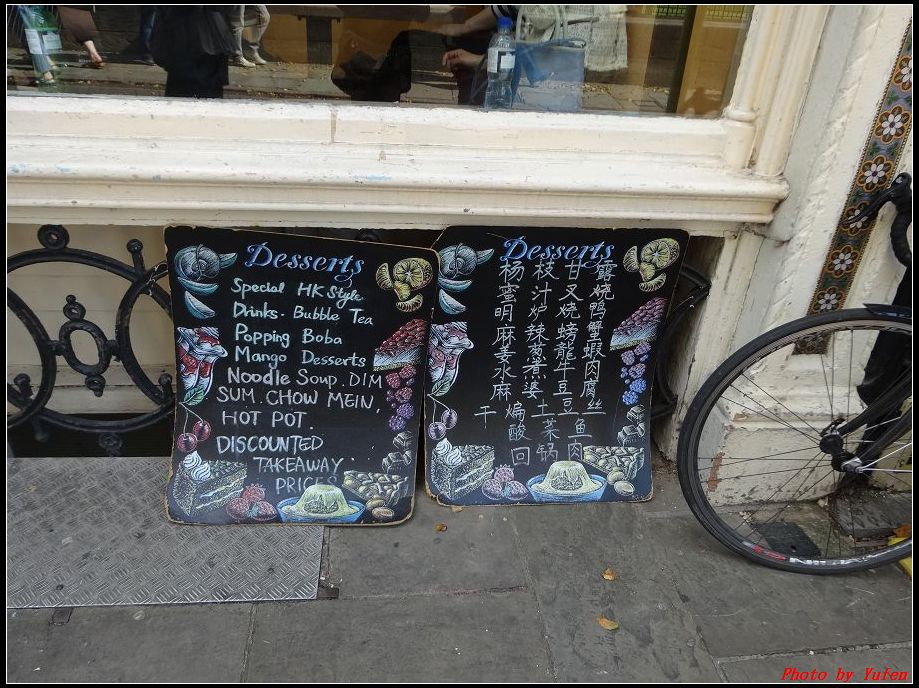 Desserts
Special HK Style
Drinks. Bubble Tea
Popping Boba
Mango Desserts
Noodle Soup. DIM
SUM. CHOW MEIN,
HOT POT.
DISCOUNTED
TAKEAWAY
PRICES
Desserts
杨枝甘露
蜜汁叉烧
明炉烧鸭
麻辣螃蟹
姜葱龍蝦
水煮牛肉
麻婆豆腐
干煸土豆丝
酸菜鱼
回锅肉
Photo by Yufen